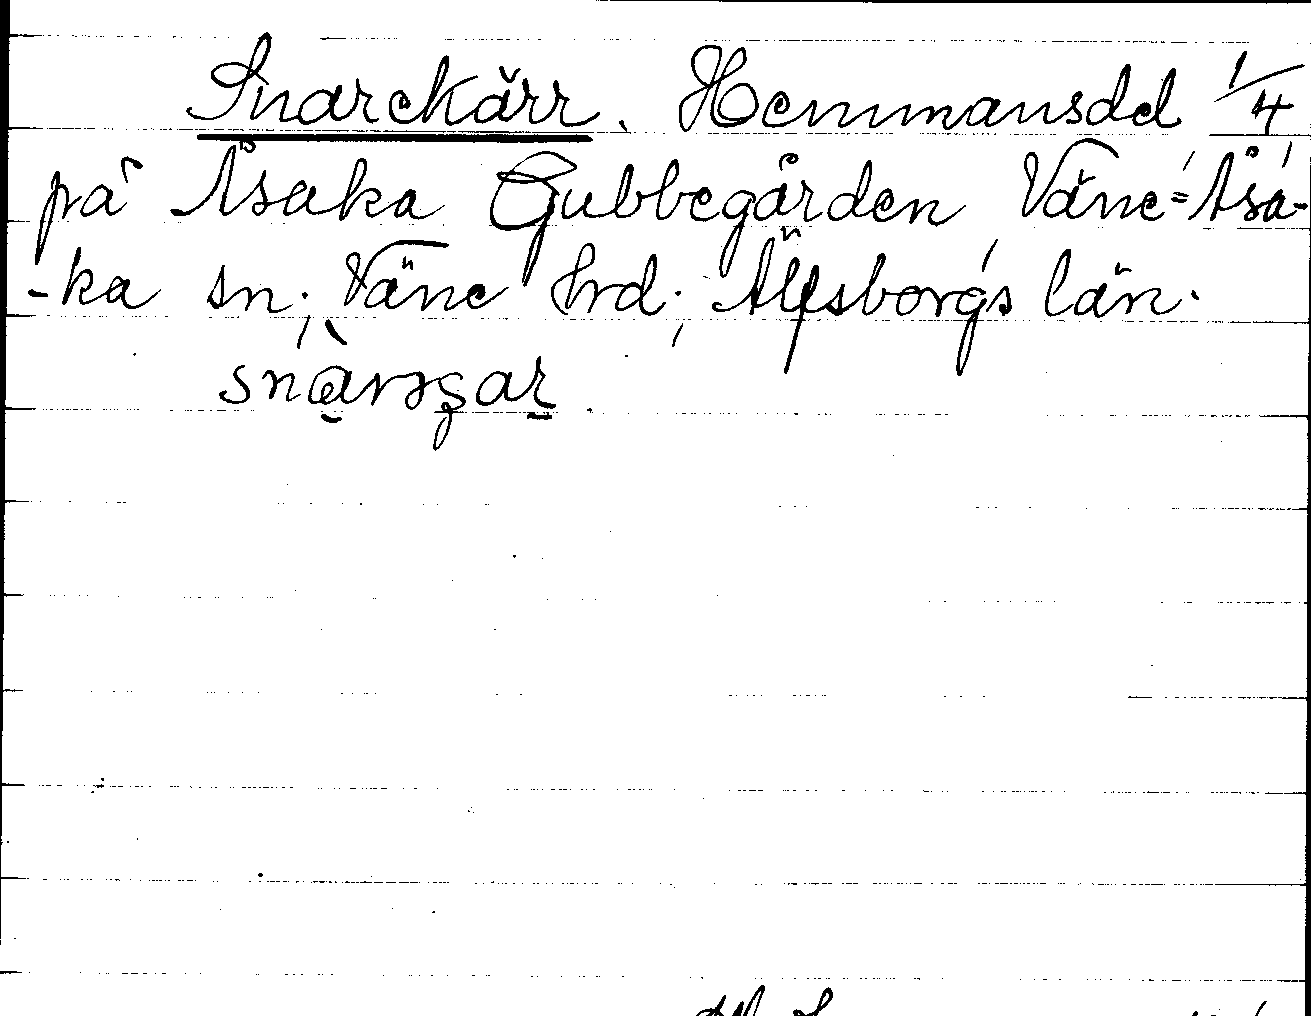 Snarekärr. Hemmansdel 1/4
på Åsaka Gubbegården Väne=Åsa-
-ka sn; Väne hrd; Älfsborgs län.